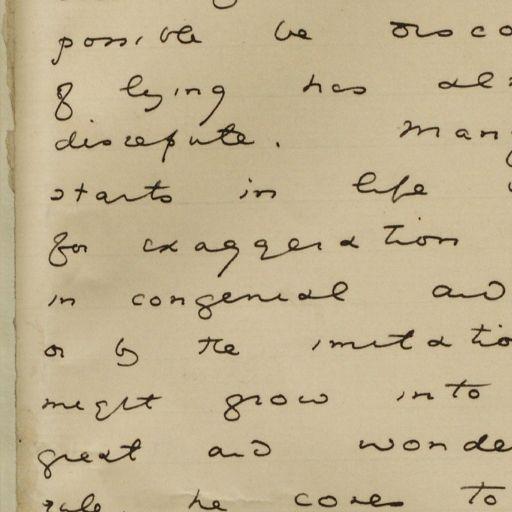 possible be disco
of lying has al
disrepute. Many
starts in life
for exaggeration
in congenial and
or by the imitatio
might grow into
great and wonde
rule, he comes to